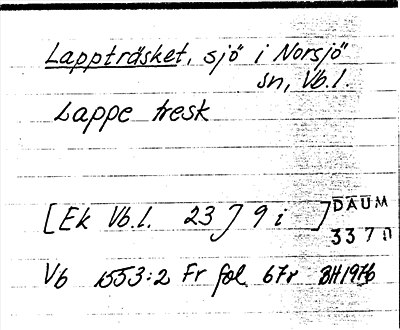 Lappträsket, sjö i Norsjö
sn, Vb.l.
Lappe tresk
[Ek Vb.l. 23 J 9 i ] DAUM
3370
Vb 1553:2 Fr fol. 67r BH1976